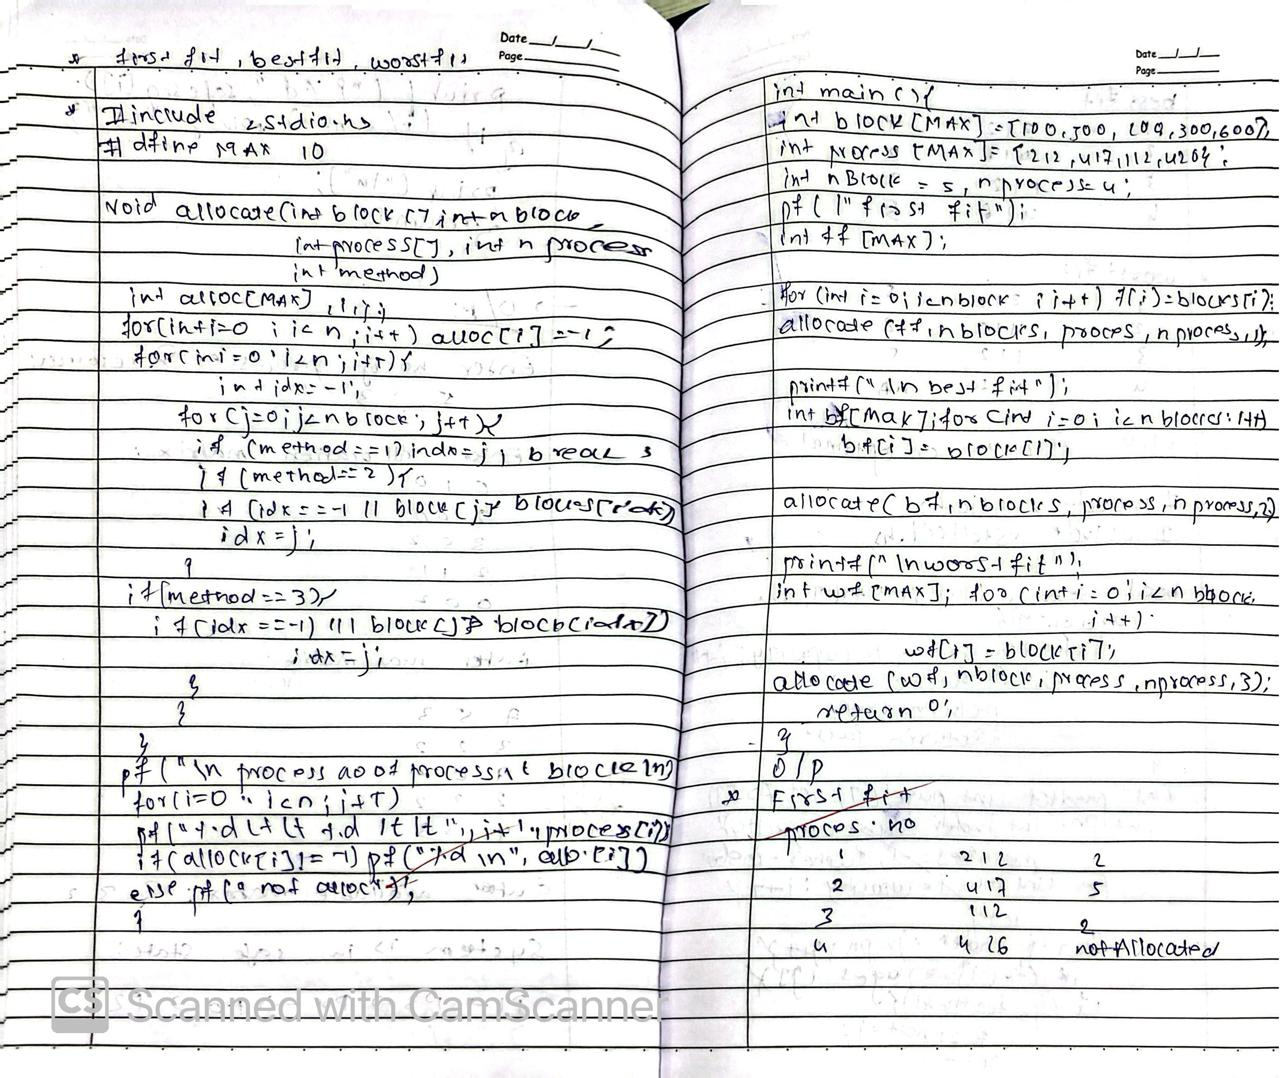 Date
Page
* first fit, bestfit, worstfit
* #include <stdio.h>
# dfine MAX 10
void allocate(int block [] int n block,
int process[], int n process
int method)
int alloc[MAX], i,j;
for(int i=0 ; i<n ; i++) alloc[i] =-1;
for(int i=0 ; i<n ; i++){
int idx=-1;
for(j=0;j<nblock; j++){
if (method==1) indx=j; break ;
if (method==2){
if (idx==-1 || block[j]> blocks[idx])
idx=j;
}
if(method==3){
if(idx==-1) || block[j]> block[idx])
idx=j;
}
}
}
pf("\n process no of process\t block\n)
for(i=0 ; i<n; i++)
pf("%d \t \t %d \t\t", i+1, process[i]);
if(allock[i]!=-1) pf("%d \n", allo.[i])
else pf(" not alloc");
}
Date
Page
int main(){
int block[MAX]={100,500, 200,300,600},
int process [MAX]= {212,417,112,426};
int nBlock = 5, n process=4;
pf( \"first fit");
int ff [MAX];
for (int i=0; i<nblock; i++) f(i)=blocks[i];
allocate (ff, nblocks, proces, n process,1);
printf("\n best fit");
int bf[Max]; for (int i=0; i<n blocks: i++)
bf[i]= block[i];
allocate( bf, nblocks, process, n process,2)
printf("\nworst fit");
int wf [MAX]; for (int i=0; i<n block,
i++)
wf[i] = block[i];
allocate (wf, nblock, process, nprocess, 3);
return 0;
}
O/P
* First fit
proces. no
1 212 2
2 417 5
3 112 2
4 426 notAllocated
CS Scanned with CamScanner